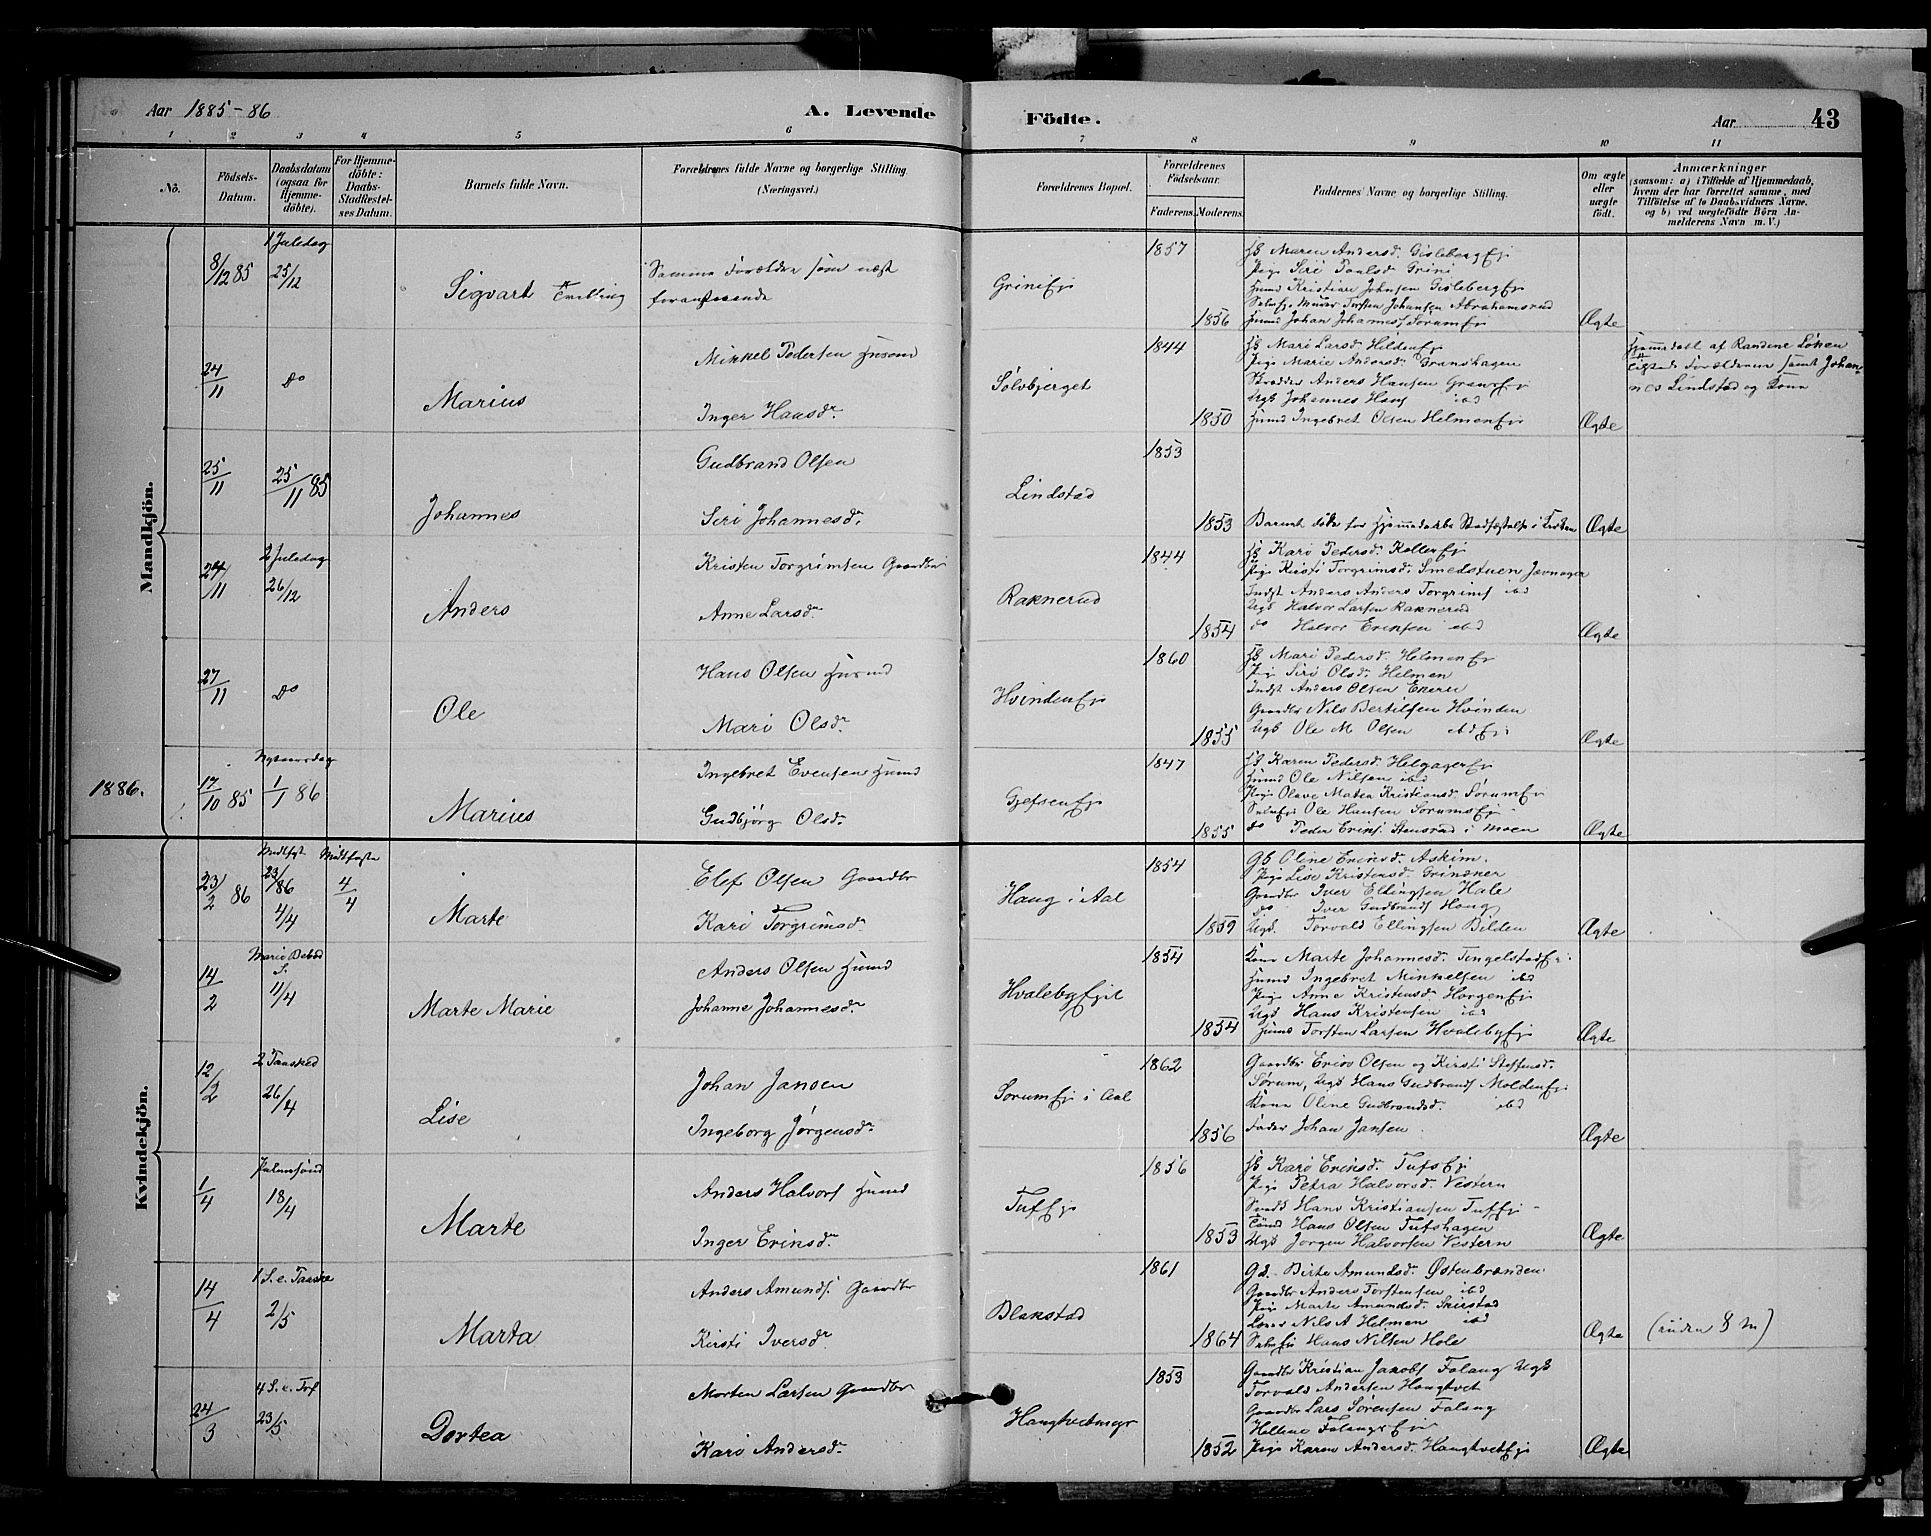 Aar 1885-86
A. Levende
Födte.
Aar
43
1 2 3 4 5 6 7 8 9 10 11
No.
Födsels-Datum.
Daabsdatum (ogsaa for Hjemmedöbte).
For Hjemmedöbte: Daabs-Stadfestelses Datum.
Barnets fulde Navn.
Forældrenes fulde Navne og borgerlige Stilling. (Næringsvei.)
Forældrenes Bopæl.
Forældrenes Födselsaar.
Faderens. Moderens.
Faddernes Navne og borgerlige Stilling.
Om ægte eller uægte födt.
Anmærkninger
(saasom: a) i Tilfælde af Hjemmedaab, hvem der har forrettet samme, med Tilföielse af to Daabsvidners Navne, og b) ved uægtefödte Börn Anmelderens Navn m. V.)
Mandkjön.
8/12 85
1 Juledag
25/12
Sigvart Tvilling
Samme Forældre som næst
foranstaaende
Griniej
1857
1856
Maren Andersd. Gislebergej
Pige Siri Paulsd. Grini
Husmd Kristian Johnsen Gislebergej
Torsten Johansen Abrahamsrud
Husmd Johan Johannes Sörumej
Ægte
24/11
do
Marius
Mikkel Pedersen Husmd
Inger Hansdr.
Sölvbjerget
1844
1850
Mari Larsd. Hildenej
Pige Marie Andersd. Granshagen
Skrædder Anders Hansen Gransej
Ugk Johannes Hans ibd
Husmd Ingebret Olsen Helmenej
Ægte
Hjemmedöbt af Randine Löken
Tilstede Forældrene samt Johan-
nes Lindstad og Kona
25/11
25/11 85
Johannes
Gudbrand Olsen
Siri Johannesd.
Lindstad
1853
1853
Barnet döde for Hjemmedaabs Stadfæstelse i Kirken
Ægte
24/11
2 Juledag
26/12
Anders
Kristen Torgrimsen Gaardbr
Anne Larsdr
Raknerud
1844
1854
Kari Pedersd. Kollerej
Pige Kirsti Torgrimsd. Smedstuen Jevnager
Indst Anders Anders Torgrims ibd
Ugk Halvor Larsen Raknerud
do Halvor Eriksen ibd
Ægte
27/11
do
Ole
Hans Olsen Husmd
Mari Olsdr
Hvindenej
1860
1855
Mari Pedersd. Helmenej
Pige Siri Olsd. Helmen
Indst Anders Olsen Ekern
Gaardbr Nils Bertilsen Hvinden
Ugk Ole M Olsen ibdej
Ægte
1886.
17/10 85
Nytaarsdag
1/1 86
Marius
Ingebret Evensen Husmd
Gudbjörg Olsd.
Gjefsenej
1847
1855
Karen Pedersd. Helgagerej
Husmd Ole Nilsen ibd
Pige Olave Matea Kristiansd. Sörumej
Selvej Ole Hansen Sorumsej
do Peder Eriks. Stensrud i Moen
Ægte
Kvindekjön.
23/2 86
Midtfast
23/86
4/4
Midtfaste
4/4
Marte
Elef Olsen Gaardbr
Kari Torgrimsd.
Haug i Aal
1854
1859
Gk Oline Eriksd. Askim.
Pige Lise Kristensd. Grinaker
Gaardbr Iver Ellingsen Hole
do Iver Gudbrands Haug
Ugk. Torvald Ellingsen Bilden
Ægte
14/2
Marie Bebud S.
11/4
Marte Marie
Anders Olsen Husmd
Johanne Johannesdr.
Hvalebyejet
1854
1854
Kone Marte Johannesd. Tingelstadej
Husmd Ingebret Mikkelsen ibd
Pige Anne Kristensd. Horgenej
Ugk Hans Kristensen ibd
Husmd Torsten Larsen Hvalebyej
Ægte
12/2
2 Paasked
26/4
Lise
Johan Jansen
Ingeborg Jörgensdr
Sorumej i Aal
1862
1856
Gaardbr Erik Olsen og Kirsti Steffensd.
Sörum, Ugk Hans Gudbrands Moldenej
Kone Oline Gudbrandsd. ibd
Fader Johan Jansen.
Ægte
1/4
Palmesönd
18/4
Marte
Anders Halvors Husmd
Inger Eriksd.
Tufej
1856
1853
Kari Eriksd. Tufsej
Pige Petra Halvorsd. Vestern
Hans Kristiansen Tufej
Hans Olsen Tufshagen
Ugk Jorgen Halvorsen Vestern
Ægte
14/4
1 S. e. Paaske
2/5
Marta
Anders Amunds. Gaardbr
Kirsti Iversdr
Blakstad
1861
1864
Gk. Birte Amundsd. Östenbrænden
Gaardbr Anders Torstensen ibd
Pige Marte Amundsd. Skiestad
Lærer Nils A Helmen ibd
Selvej Hans Nilsen Hole
Ægte
24/3
4 S. e. Paas
23/5
Dortea
Morten Larsen Gaardbr
Kari Andersd.
Haugtvetmoyr
1853
1852
Gaardbr Kristian Jakobs Falang Ugk
Torvald Andersen Haugtvet
Gaardbr Lars Sörensen Falang
Hellene Falangsej
Pige Karen Andersd. Haugtvetej
Ægte